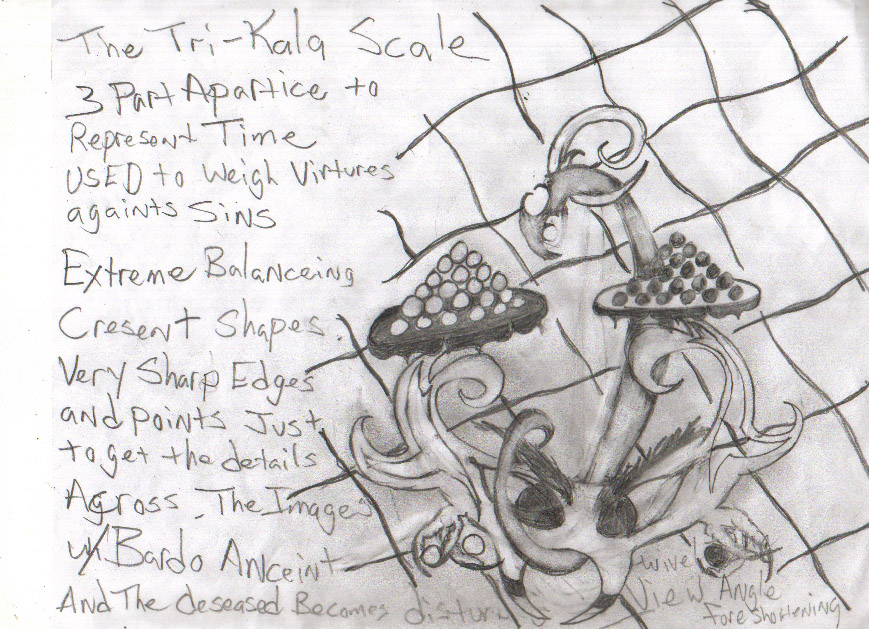 The Tri-Kala Scale
3 Part Apartice to
Represont Time
USED to Weigh Virtures
againts Sins
Extreme Balanceing
Cresent Shapes.
Very Sharp Edges
and points Just
to get the details
Agross The Images
w/Bardo Anceint
And The deseased Becomes
View Angle
Foreshortening